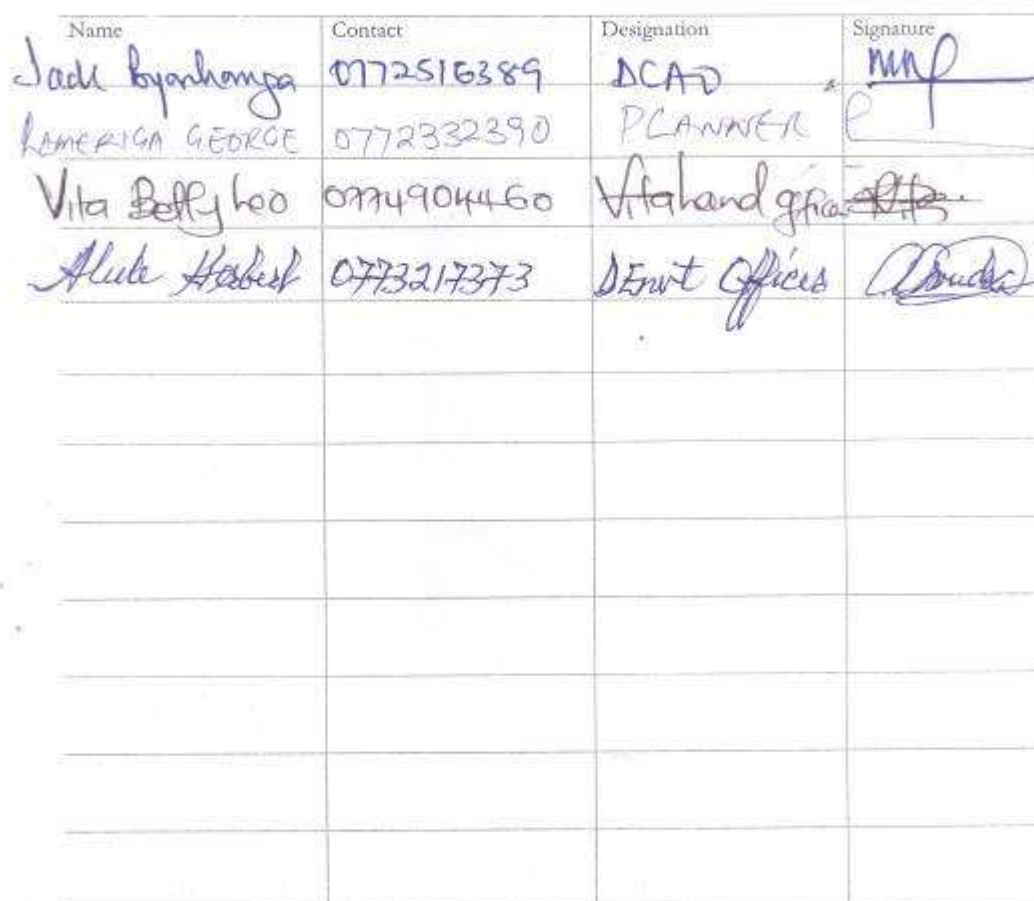 Name Contact Designation Signature
Jack Byarhanga 0772516389 DCAO
GEORGE 0772332390 PLANNER
Vita Betty Leo 0774904460
Alule Herbert 0773217373 DEnvt Officer